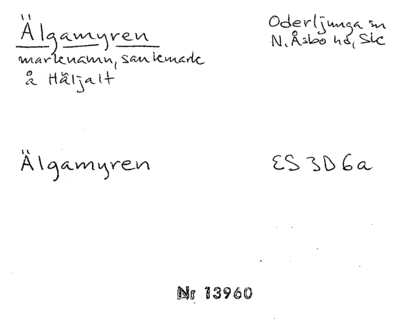 Älgamyren
Oderljunga sn
N. Åsbo hd, Sk
marknamn, sankmark
å Häljalt
Älgamyren
ES 3D6a
Nr 13960